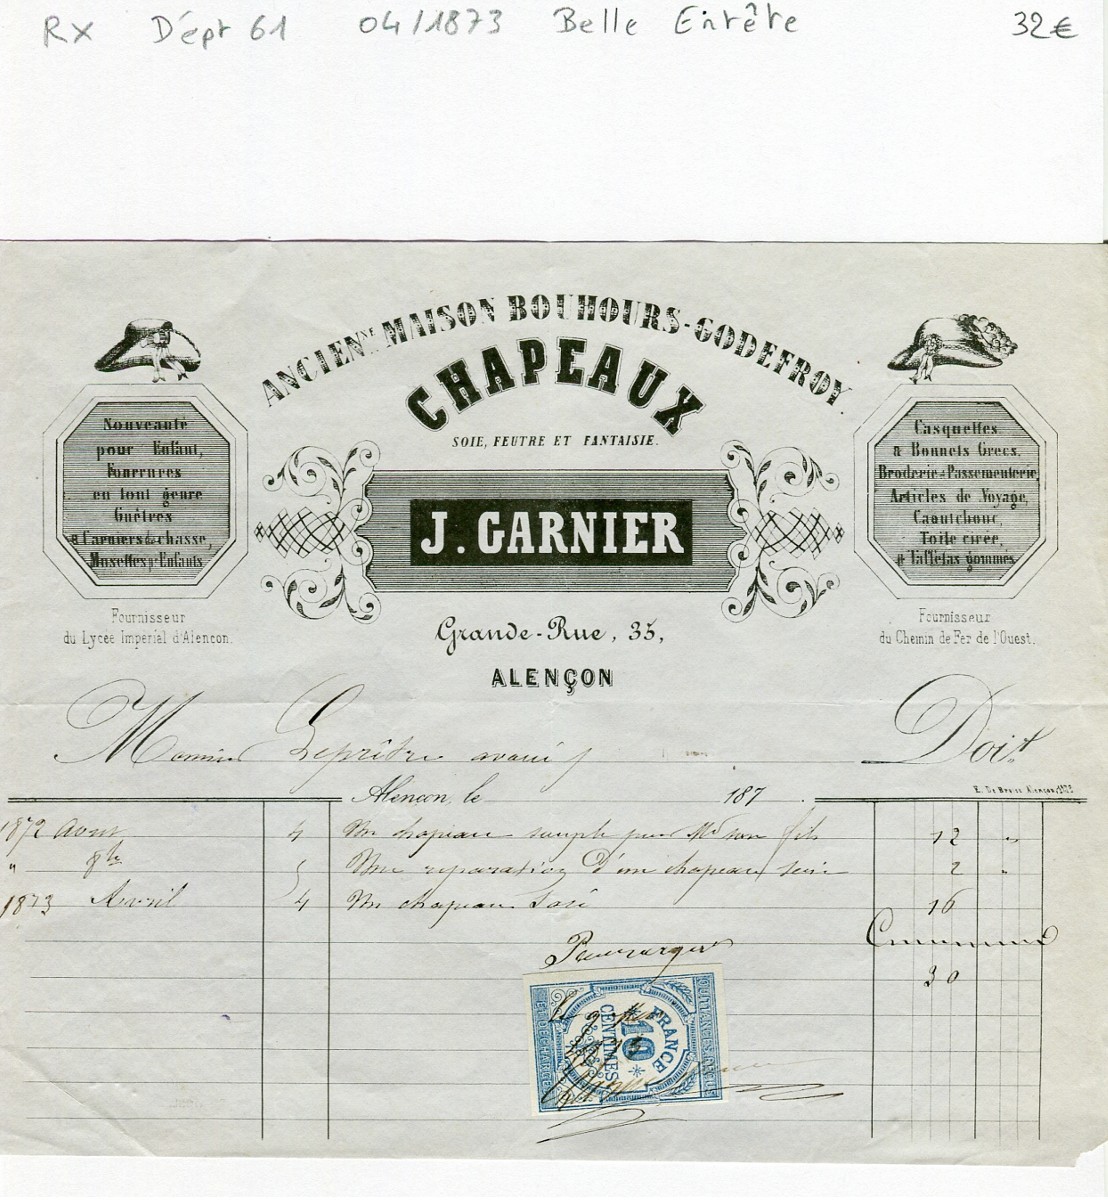 RX Dépt 61 04/1873 Belle Entête 32€
ANCIENNE MAISON BOUHOURS-GODEFROY
CHAPEAUX
SOIE, FEUTRE ET FANTAISIE.
J. GARNIER
Grande-Rue, 35,
ALENÇON
Nouveauté
pour Enfant,
Fourrures
en tout genre
Guêtres
& Carniers de chasse,
Musettes pr Enfants
Fournisseur
du Lycée Impérial d'Alençon.
Casquettes
& Bonnets Grecs.
Broderie & Passementerie
Articles de Voyage,
Caoutchouc,
Toile cirée,
& Taffetas gommés
Fournisseur
du Chemin de Fer de l'Ouest.
Monsieur Leprêtre Doit
Alençon, le 187
1872 4 Un chapeau souple pour Mr son fils 12 "
" 8bre 5 Une réparation d'un chapeau soie 2 "
1873 Avril 4 Un chapeau 16
Pour
30
QUITTANCES REÇUS
FRANCE
10
CENTIMES
ET DÉCHARGES